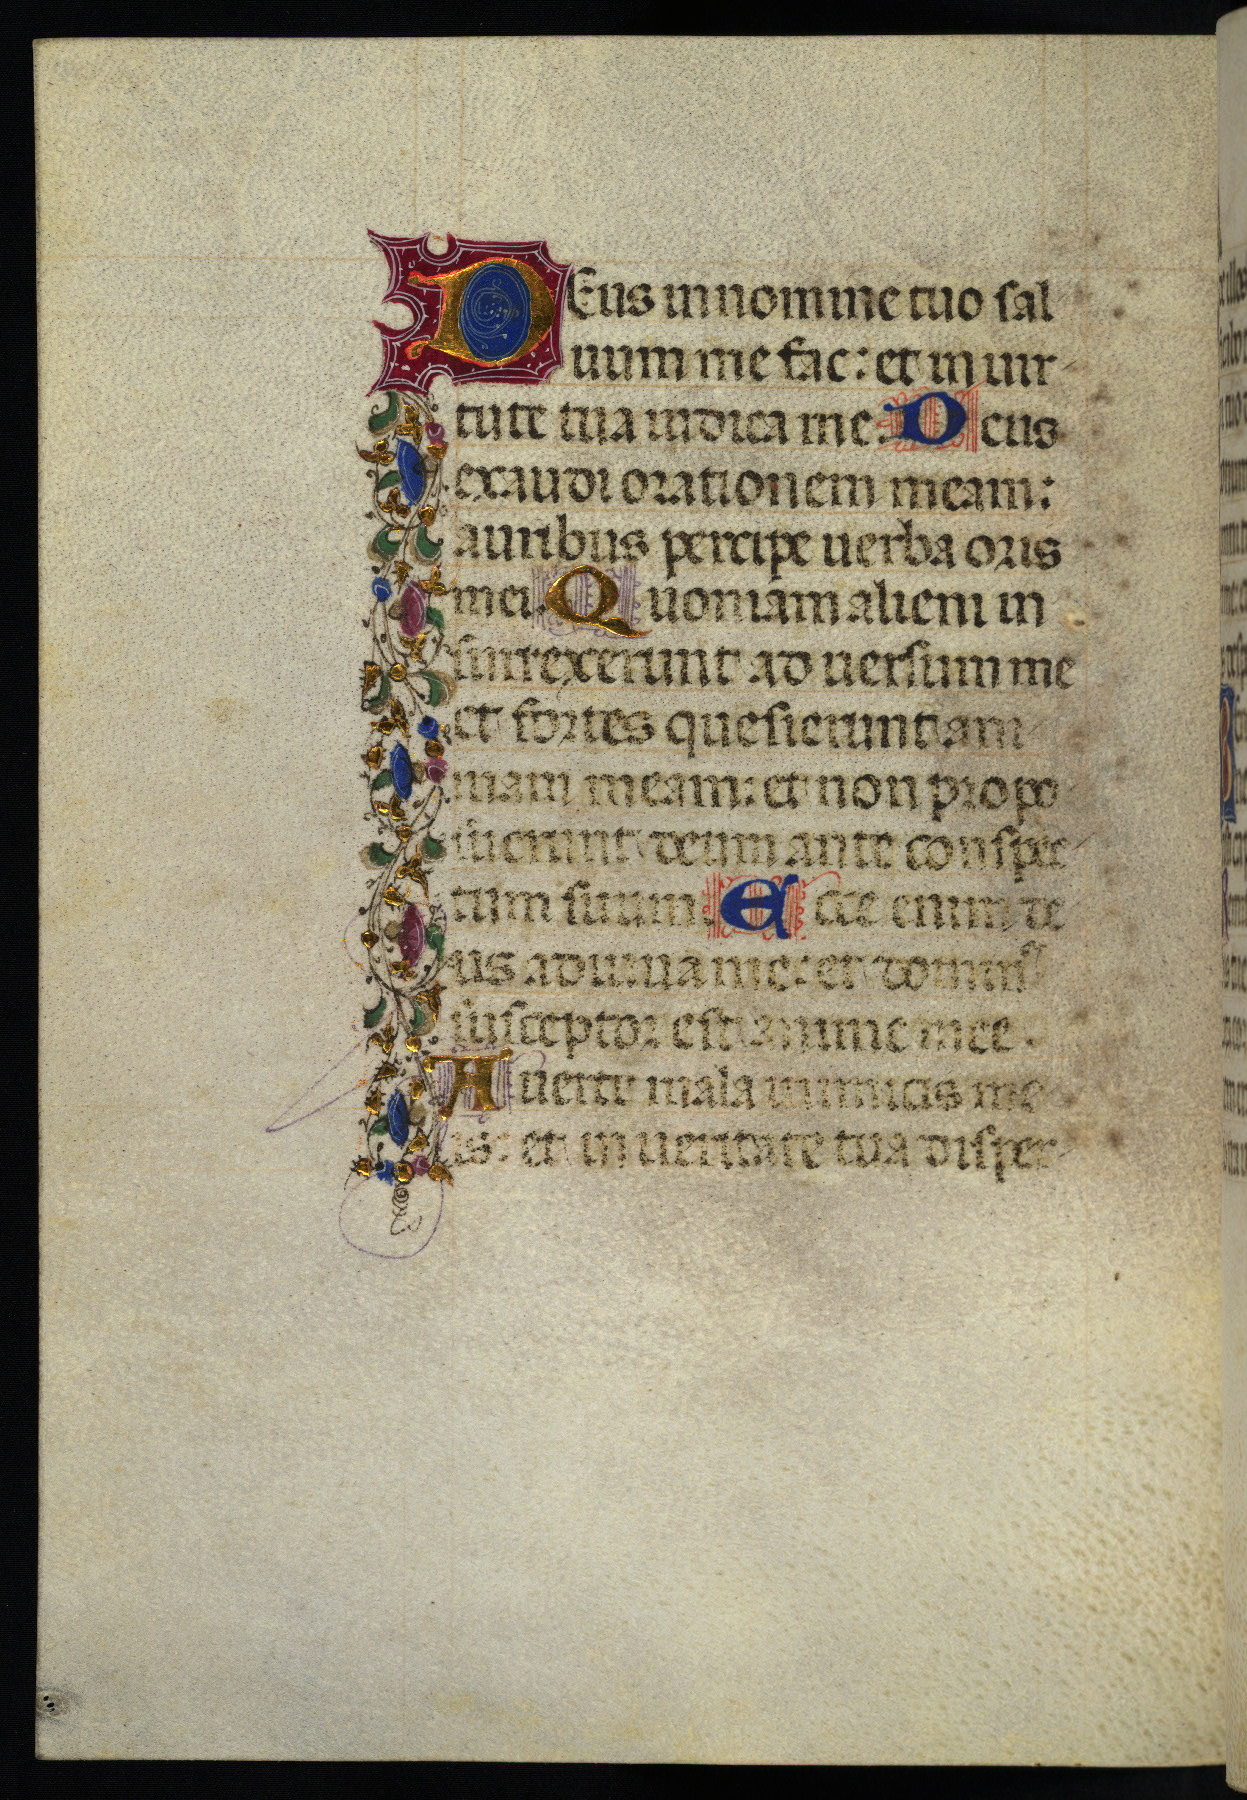 DEus in nomine tuo sal
uum me fac: et in uir
tute tua iudica me. Deus
exaudi orationem meam:
auribus percipe uerba oris
mei. Quoniam alieni in
surrexerunt aduersum me
et fortes quesierunt ani
mam meam: et non propo
suerunt deum ante conspec
tum suum. Ecce enim de
us adiuua me: et domin9
susceptor est anime mee.
Auerte mala inimicis me
is: et in ueritate tua disper